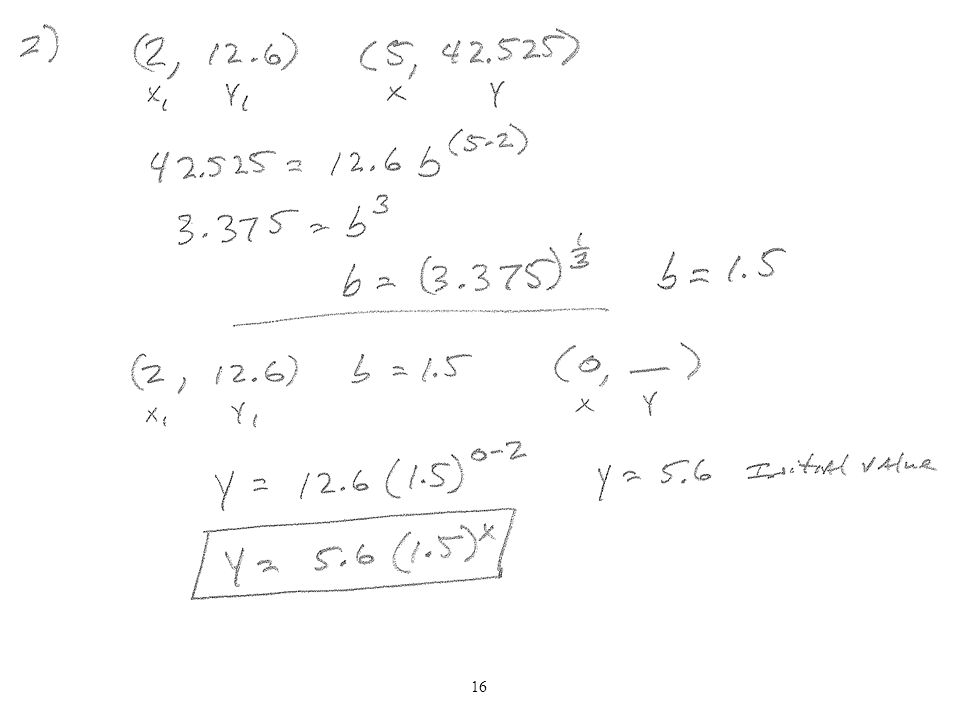 2) (2, 12.6) (5, 42.525)
x₁ y₁ x y
42.525 = 12.6 b^(5-2)
3.375 = b^3
b = (3.375)^1/3 b = 1.5
(2, 12.6) b = 1.5 (0, __)
x₁ y₁ x y
y = 12.6 (1.5)^0-2 y = 5.6 Initial value
y = 5.6 (1.5)^x
16